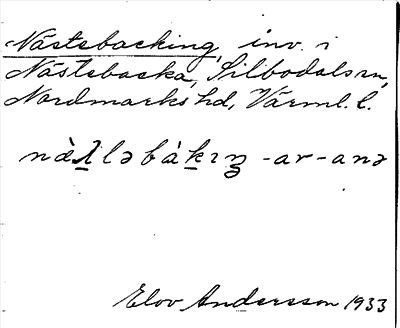 Nästebacking, inv. i
Nästebacka, Silbodals sn,
Nordmarks hd, Värml. l.
-ar -anə
Elov Andersson 1933